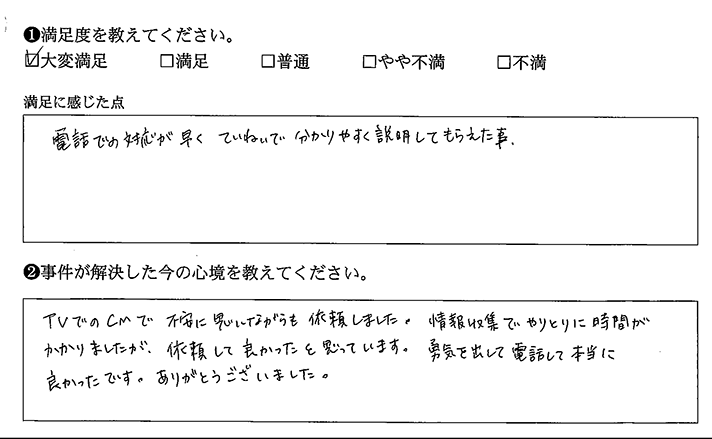 ❶満足度を教えてください。
☑大変満足 □満足 □普通 □やや不満 □不満
満足に感じた点
電話での対応が早く ていねいで 分かりやすく説明してもらえた事.
❷事件が解決した今の心境を教えてください。
TVでのCMで 不安に思いながらも 依頼しました。 情報収集でやりとりに時間が
かかりましたが、依頼して良かったと思っています。 勇気を出して電話して本当に
良かったです。ありがとうございました。